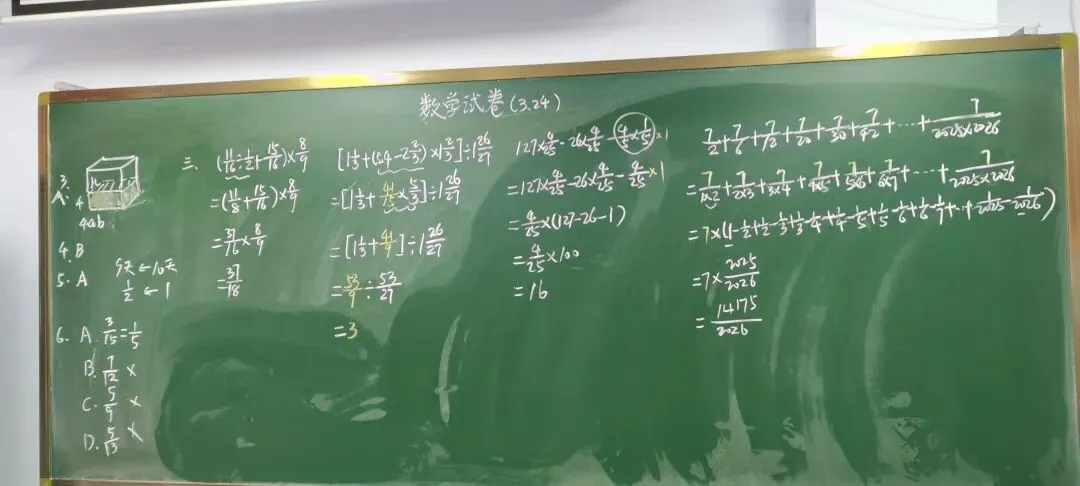 数学试卷(3.24)
3.
A. 4
4ab
4. B
5. A 5天←10天
1/2 ← 1
6. A. 3/15=1/5
B. 7/12 ×
C. 5/9 ×
D. 5/13 ×
三、(11/16÷1/2+15/16)×8/9
=(11/8+15/16)×8/9
=37/16×8/9
=37/18
[1 1/3+(5.4-2 2/3)×1 2/3]÷1 26/27
=[1 1/3+41/15×5/3]÷1 26/27
=[1 1/3+41/9]÷1 26/27
=53/9÷53/27
=3
127×4/25-26×4/25-4/5×1/5×1
=127×4/25-26×4/25-4/25×1
=4/25×(127-26-1)
=4/25×100
=16
7/2+7/6+7/12+7/20+7/30+7/42+……+7/2025×2026
=7/1×2+7/2×3+7/3×4+7/4×5+7/5×6+7/6×7+……+7/2025×2026
=7×(1-1/2+1/2-1/3+1/3-1/4+1/4-1/5+1/5-1/6+1/6-1/7+…+1/2025-1/2026)
=7×2025/2026
=14175/2026